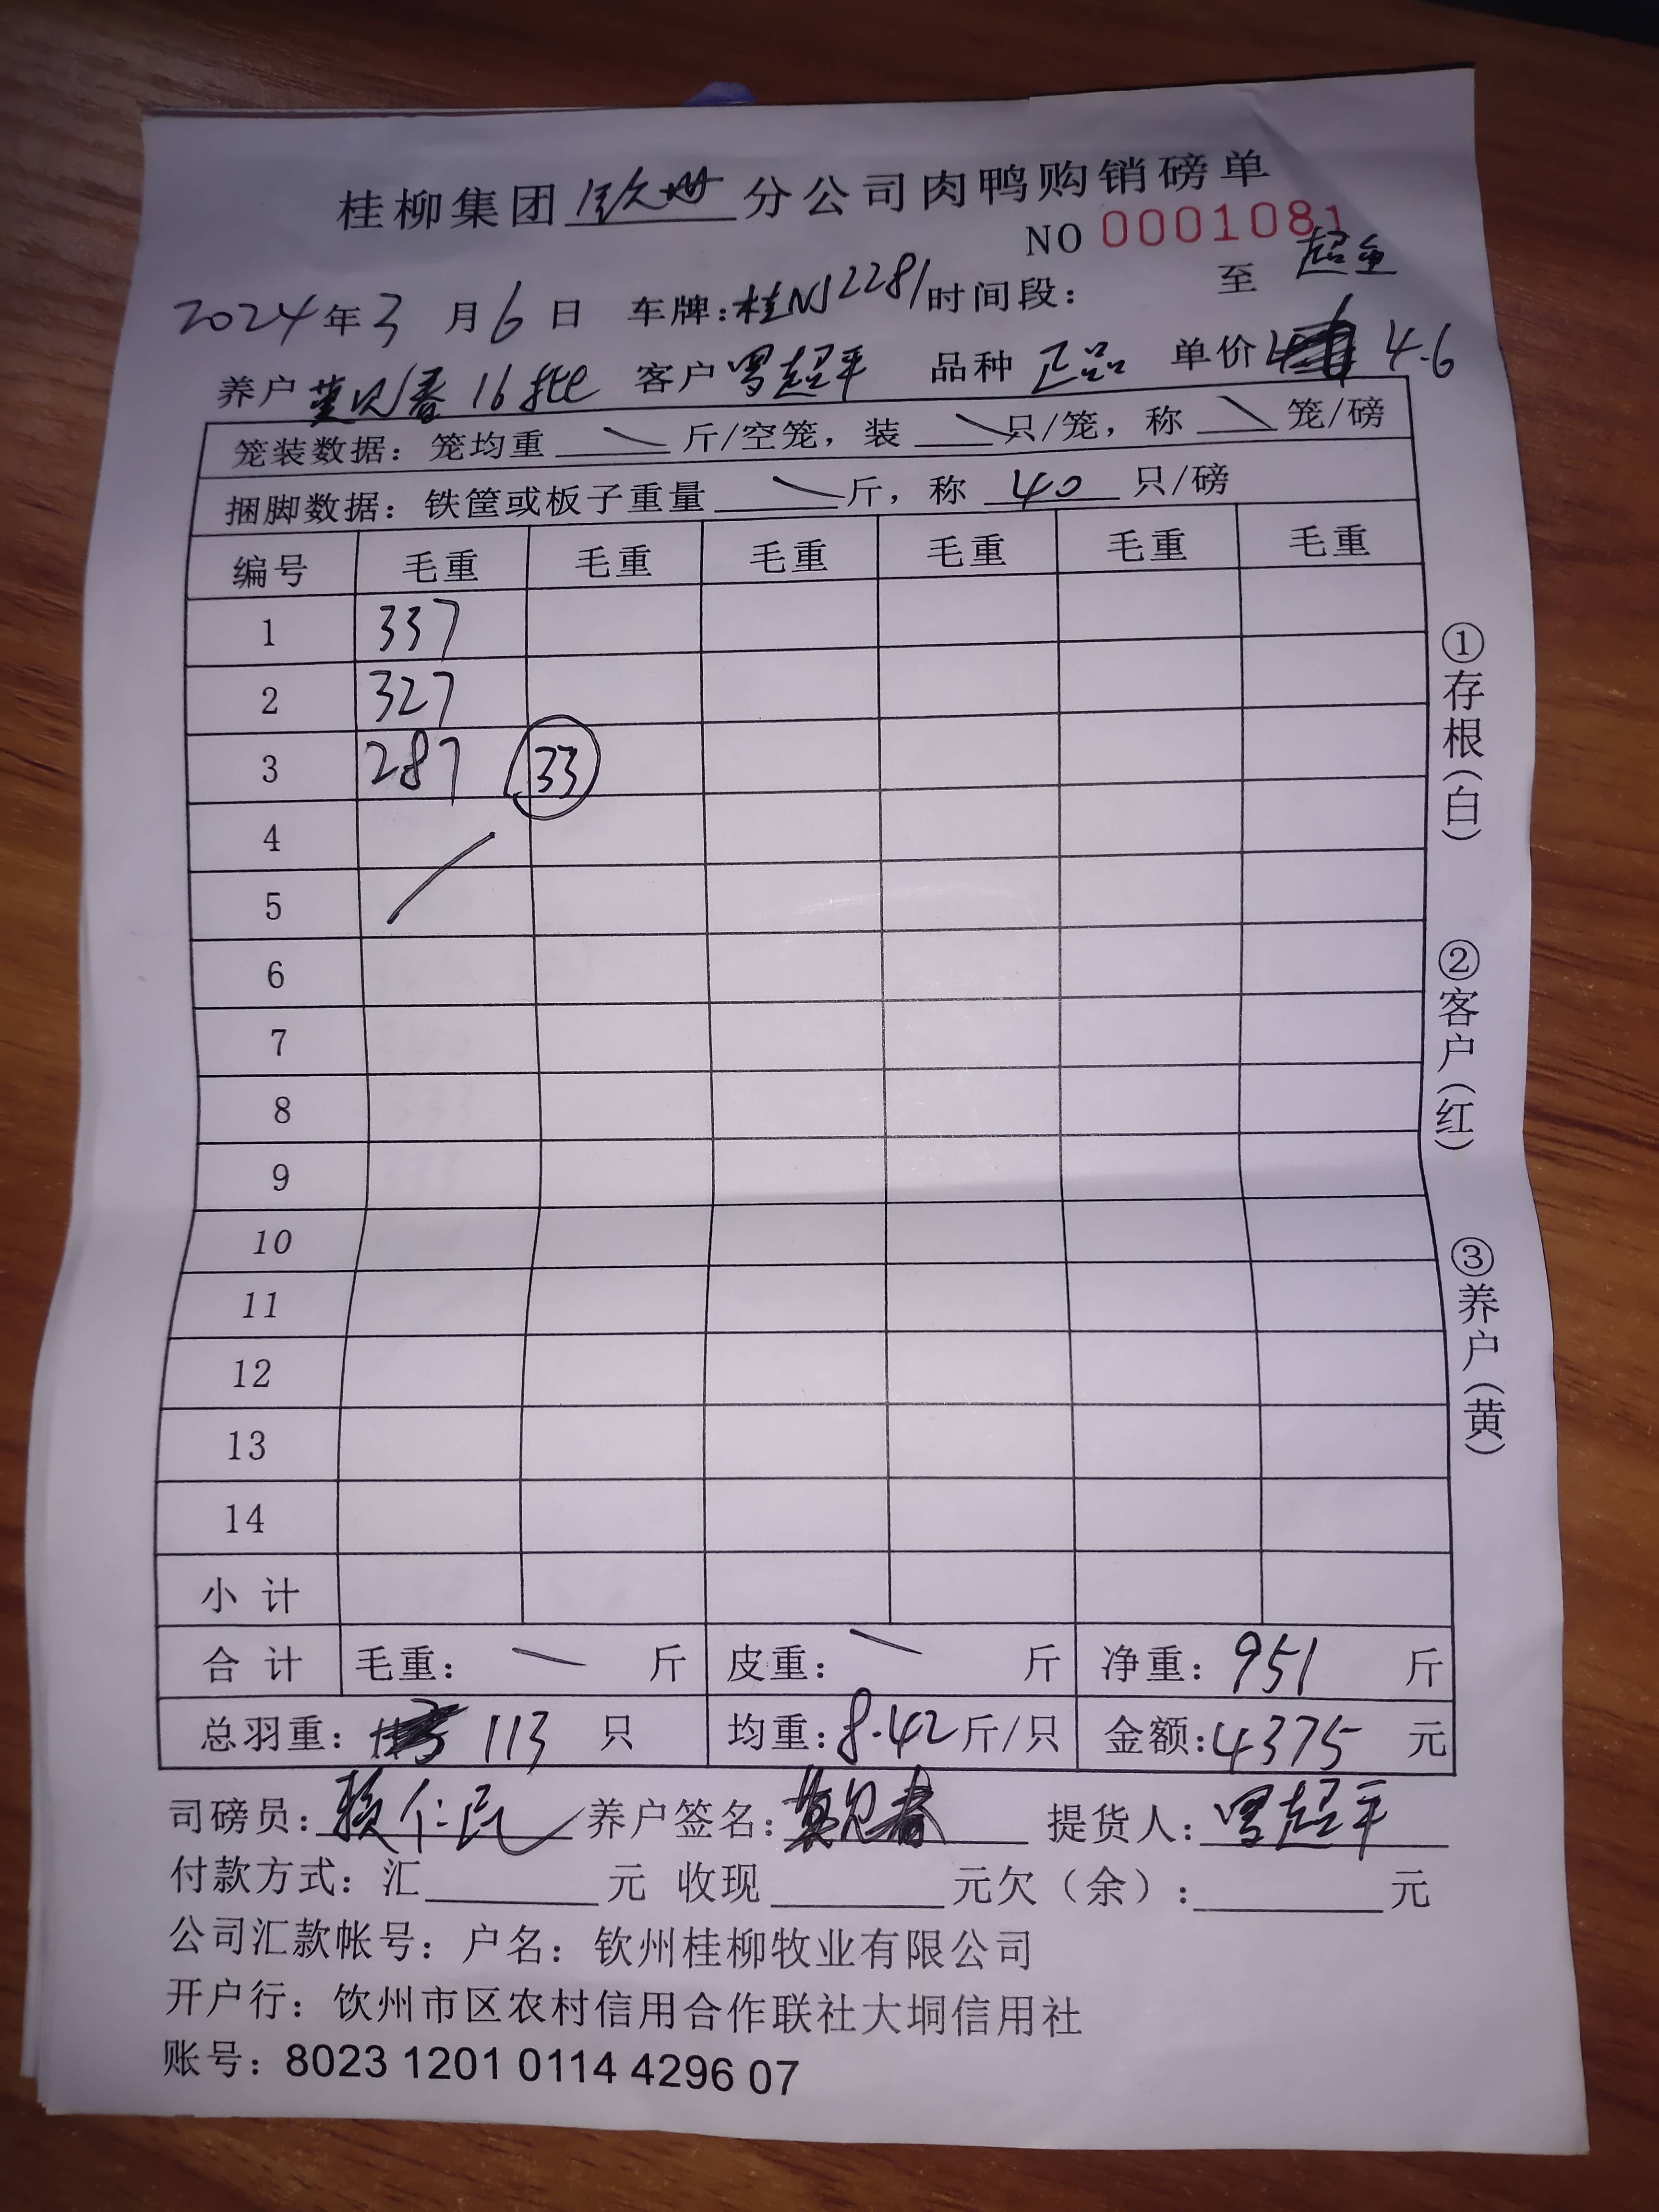 桂柳集团 钦州 分公司肉鸭购销磅单
NO 0001081
超重
2024年3月6日 车牌:桂NJ2281 时间段: 至
养户 莫见春 16批 客户 罗超平 品种 正品 单价 4.6
笼装数据: 笼均重 斤/空笼, 装 只/笼, 称 笼/磅
捆脚数据: 铁筐或板子重量 斤, 称 40 只/磅
编号 毛重 毛重 毛重 毛重 毛重 毛重
1 337
2 327
3 287 33
4
5
6
7
8
9
10
11
12
13
14
小计
合计 毛重: 斤 皮重: 斤 净重: 951 斤
总羽重: 113 只 均重: 8.42 斤/只 金额: 4375 元
司磅员: 仁民 养户签名: 莫见春 提货人: 罗超平
付款方式: 汇 元 收现 元欠(余): 元
公司汇款帐号: 户名: 钦州桂柳牧业有限公司
开户行: 钦州市区农村信用合作联社大垌信用社
账号: 8023 1201 0114 4296 07
①存根(白)
②客户(红)
③养户(黄)